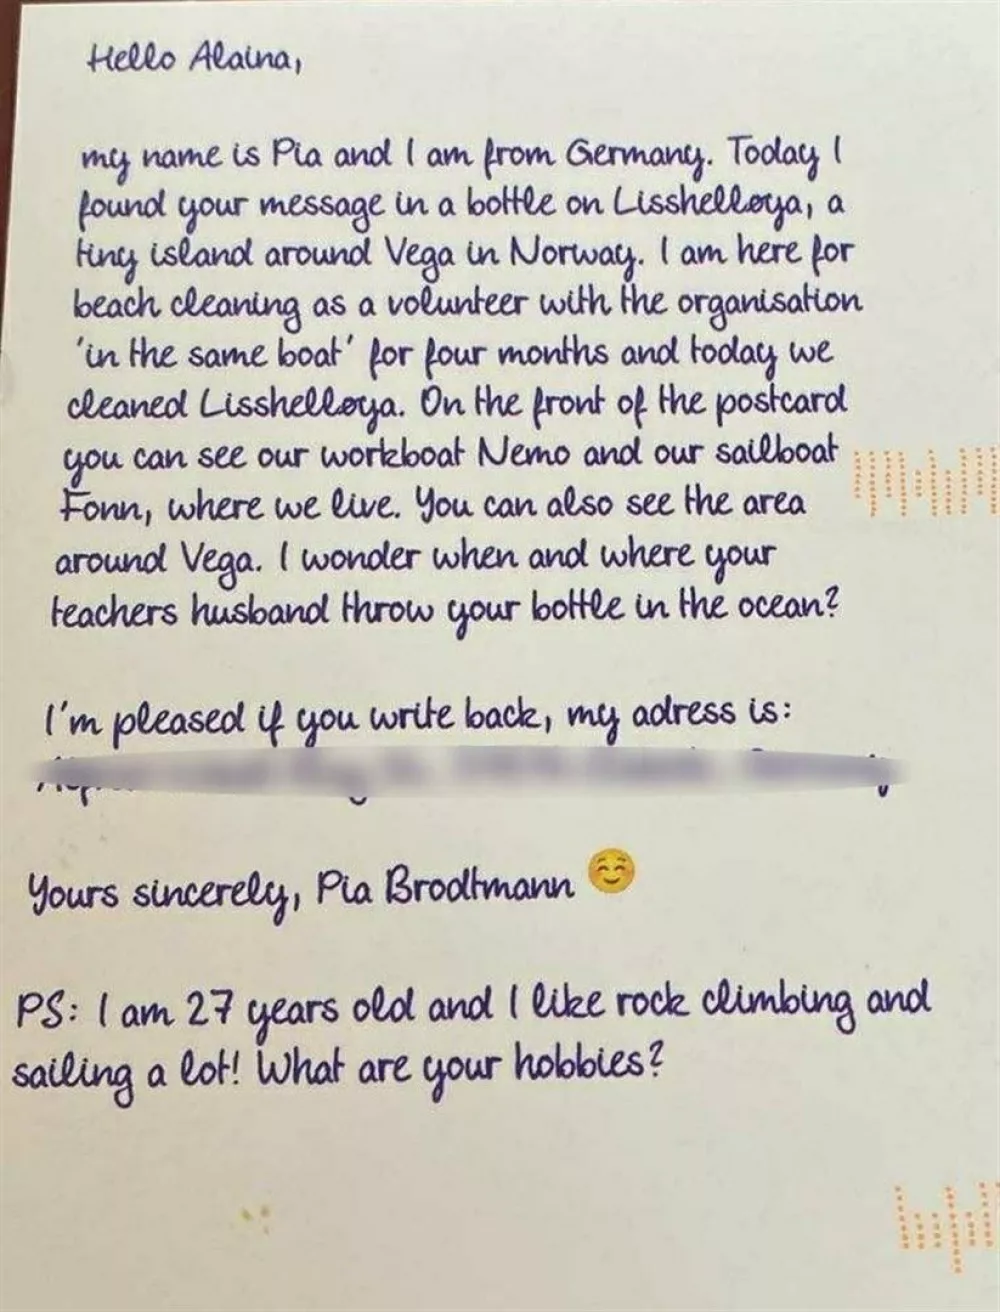 Hello Alaina,
my name is Pia and I am from Germany. Today I
found your message in a bottle on Lisshelløya, a
tiny island around Vega in Norway. I am here for
beach cleaning as a volunteer with the organisation
'in the same boat' for four months and today we
cleaned Lisshelløya. On the front of the postcard
you can see our workboat Nemo and our sailboat
Fonn, where we live. You can also see the area
around Vega. I wonder when and where your
teachers husband throw your bottle in the ocean?
I'm pleased if you write back, my adress is:
Yours sincerely, Pia Brodtmann ☺️
PS: I am 27 years old and I like rock climbing and
sailing a lot! What are your hobbies?